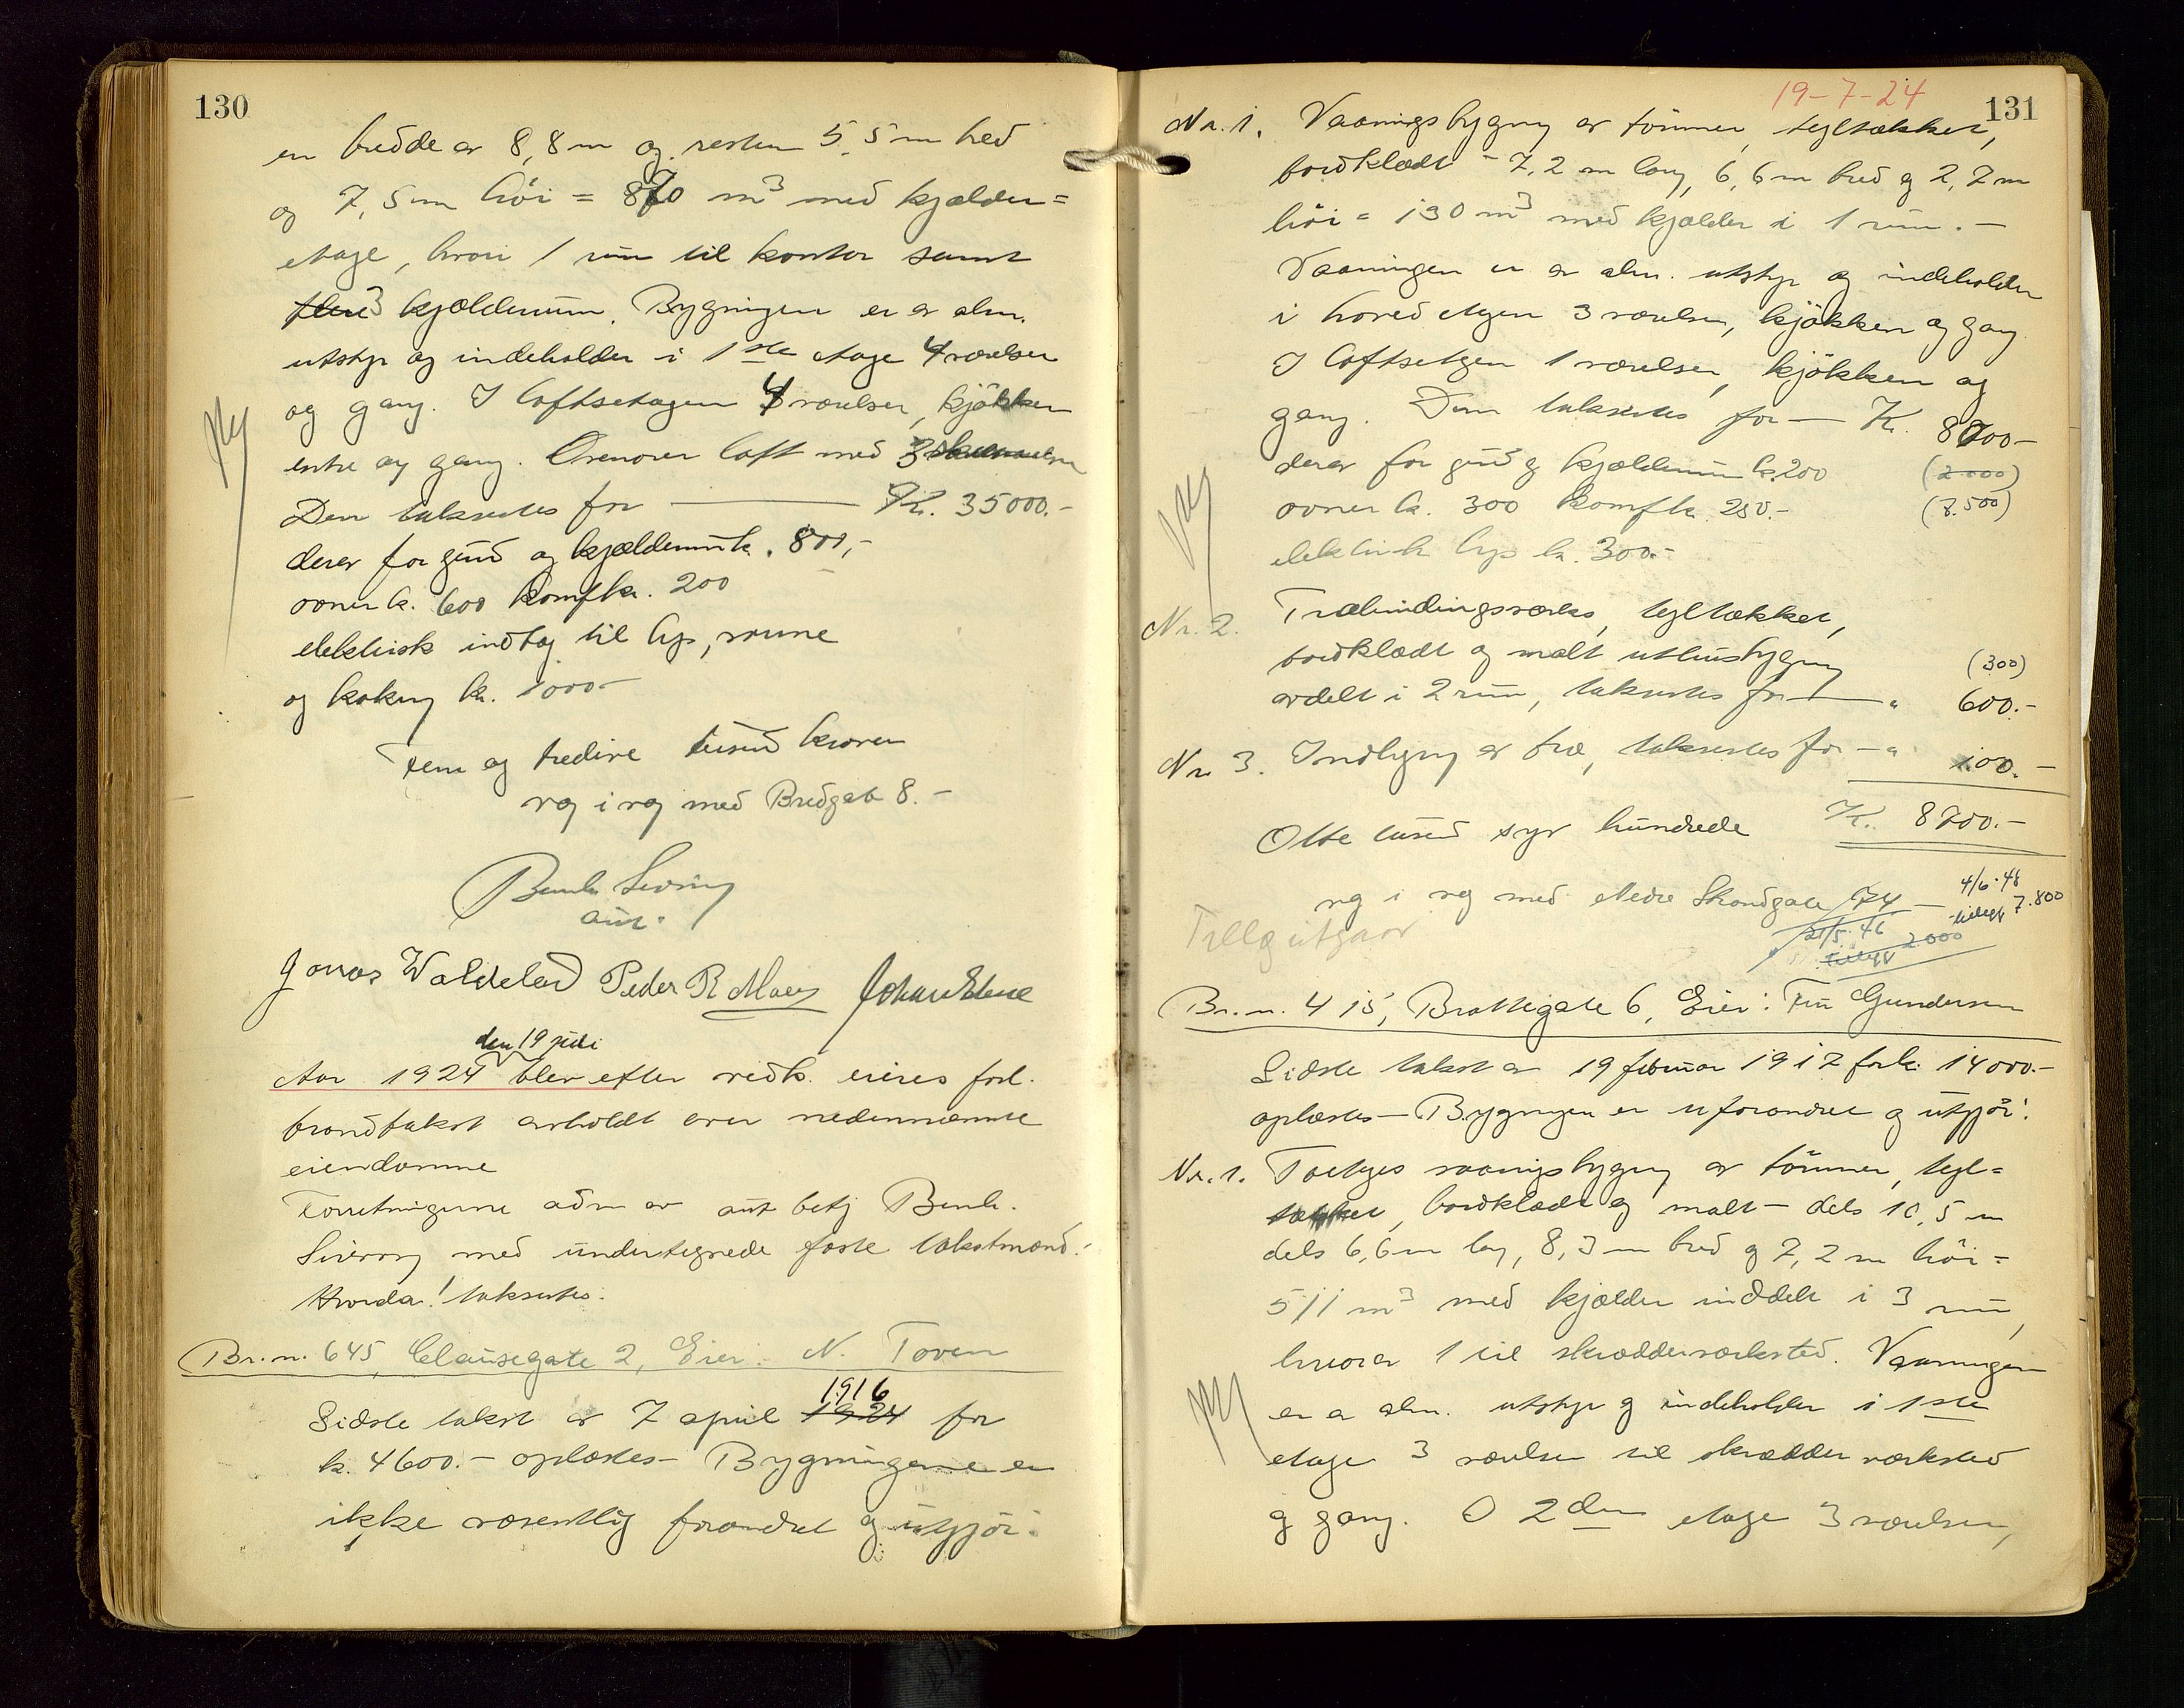 130
en bredde av 8,8 m og resten 5,5 m bred
og 7,5 m höi = 870 m³ med kjælder=
etage, hvori 1 rum til kontor samt
flere 3 kjælderrum. Bygningen er av alm.
utstyr og indeholder i 1ste etage 4 værelser
og gang. I loftsetagen 4 værelser, kjökken
entre og gang. Ovenover loft med 3
Den taksertes for — Kr. 35000.-
derav for grund og kjælderrum k. 800,-
ovner k. 600 komf kr. 200
elektrisk indlæg til lys, varme
og koking kr. 1000.-
Fem og tredive tusind kroner
væg i væg med Bredgate 8.-
Ny
Bernh. Sivring
aut.
Jonas Waldeland Peder R Moen Johan Elene
den 19 juli
Aar 1924 blev efter vedk. eieres forl.
brandtakst avholdt over nedennævnte
eiendomme
Forretningerne adm av aut betj Bernh.
Sivring med undertegnede faste takstmænd.
Hvorda! taksertes:
Br.n. 645, Clausegate 2, Eier: N. Toven
1916
Sidste takst av 7 april 1924 for
k. 4600.- oplæstes - Bygningerne er
ikke væsentlig forandret og utgjör:
19-7-24
131
Nr. 1. Vaaningsbygning av tömmer, tegltækket,
bordklædt - 7,2 m lang, 6,6 m bred og 2,7 m
höi = 130 m³ med kjælder i 1 rum. -
Vaaningen er av alm. utstyr og indeholder
i hovedetagen 3 værelser, kjökken og gang
I loftsetagen 1 værelser, kjökken og
gang. Den taksertes for — Kr. 8000-
derav for grund og kjælderrum k. 200 (2.000)
ovner k. 300 komf k. 250.- (7.500)
elektrisk lys k. 300.-
Ny
Nr. 2. Træbindingsværks, tegltækket,
bordklædt og malt uthusbygning (300)
avdelt i 2 rum, taksertes for — " 600.-
Nr. 3. Indhegning av træ, taksertes for — " 100.-
Otte tusind syv hundrede Kr. 8700.-
væg i væg med Nedre Strandgate 74 -
4/6.48
tillegg 7.800
21/5.46
tillegg 2000
Tillegg utgaar
Br.n. 415, Brattegate 6, Eier: Finn Gundersen
Sidste takst av 19 februar 1917 for k. 14000.-
oplæstes - Bygningen er uforandret og utgjör:
Nr. 1. Toetages vaaningsbygning av tömmer, tegl=
tækket, bordklædt og malt - dels 10,5 m
dels 6,6 m lang, 8,3 m bred og 7,2 m höi =
511 m³ med kjælder inddelt i 3 rum,
hvorav 1 til skrædderverksted. Vaaningen
er av alm. utstyr og indeholder i 1ste
etage 3 værelser til skrædderverksted
og gang. I 2den etage 3 værelser,
Ny